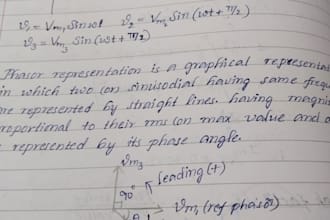 v₁ = Vm₁ Sin ωt v₂ = Vm₂ Sin (ωt + π/2)
v₃ = Vm₃ Sin (ωt + π/2)
Phasor representation is a graphical
in which two (or sinusodial having same
represented by straight lines. having
proportional to their rms (or max value and
represented by its phase angle.
Vm₃
90° leading (+)
Vm₁ (ref phasor)